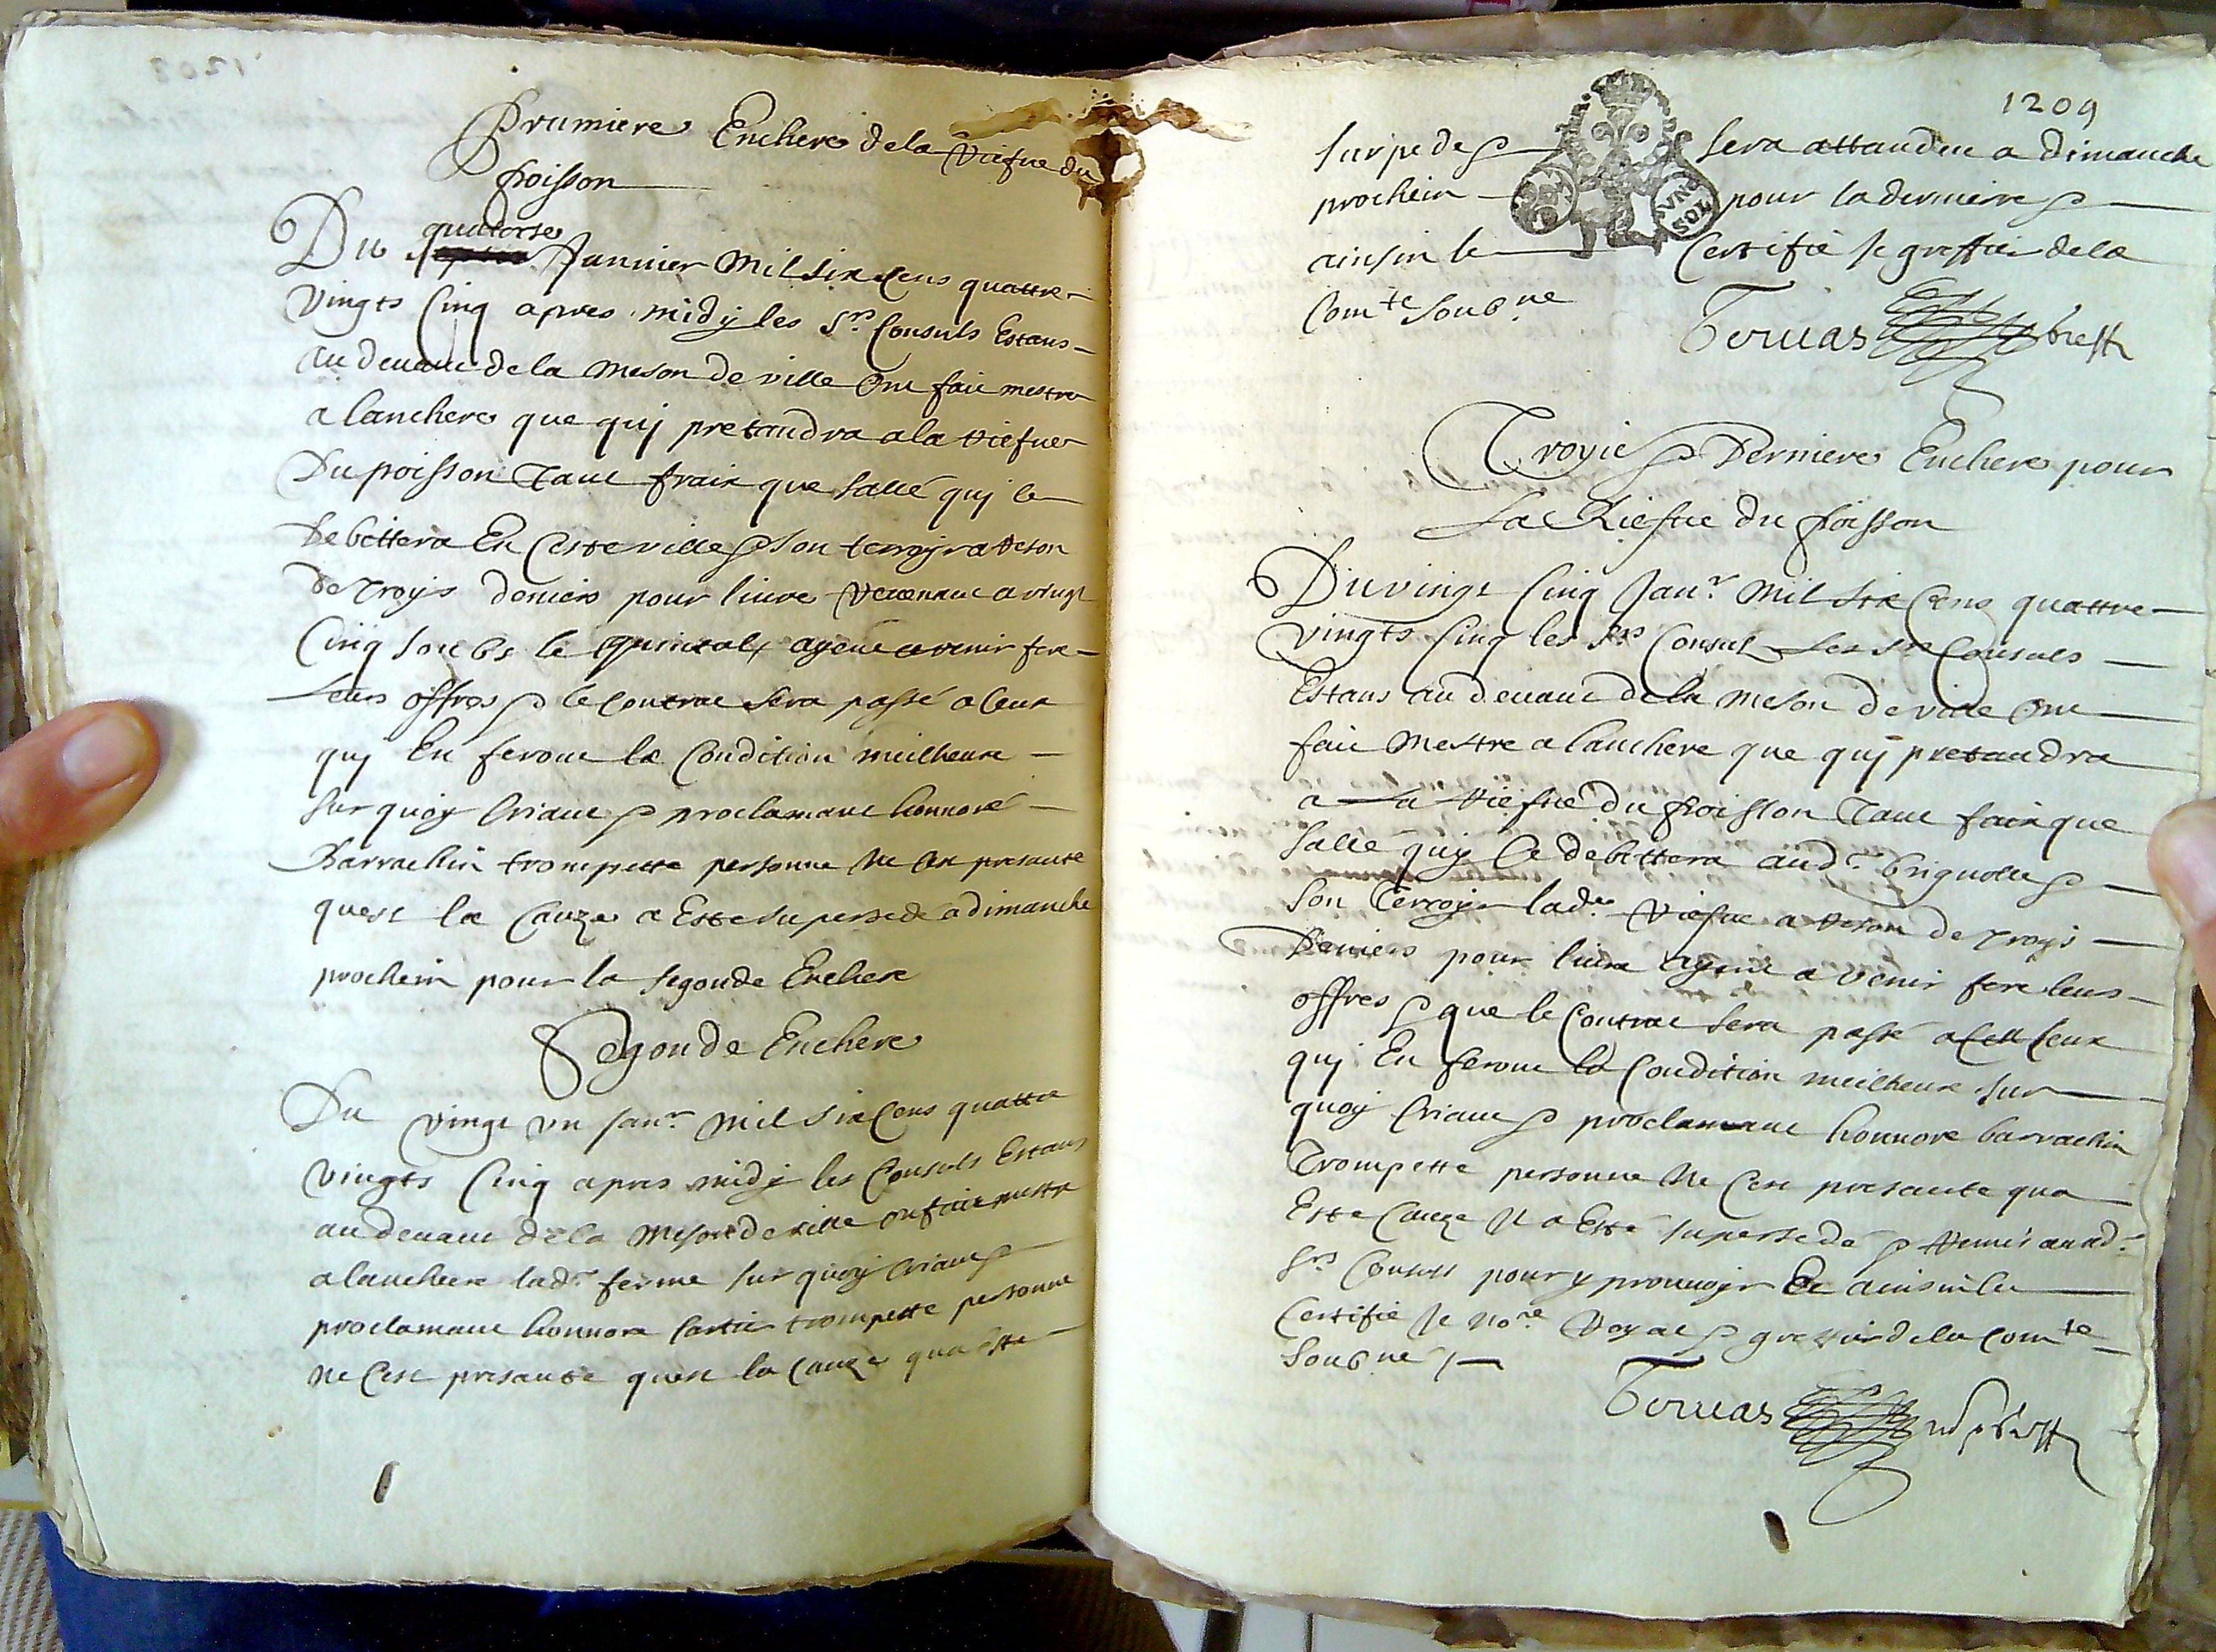 Prumiere Enchere dela Riesve du
poisson
Du quatorse Janvier Mil Six Cens quattre
vingts Cinq apres midy les Srs Consuls Estans
au devant de la Meson de ville Ont fait mettre
a lanchere que quj pretandra a la riesve
Du poisson Tant fraix que sallé quj ce
Debittera En Ceste ville & son terroyr a reson
de Troys deniers pour livre Revenant a vingt
Cinq soubs le quintal, ayent a venir fere
Leurs offres & le Contrac sera passé a Ceux
quj En feront la Condition meilheure
sur quoy Criant & proclamant honnoré
Barrachin trompette personne Ne Cest presanté
quest la Cauze a Esté supersedé a dimanche
prochein pour la segonde Enchere
Segonde Enchere
Du vingt un Janr Mil Six Cens quattre
vingts Cinq apres midy les Consuls Estans
au devant dela Meson de ville on fait mettre
a lanchere lade ferme sur quoy Criant &
proclamant honnore trompette personne
Ne Cest presanté quest la Cauze qua Esté
1209
surpede & sera attandue a dimanche
prochein pour la derniere &
ainsin le Certifie Je greffier de la
Comte soubne
Fervas greff
Troyie & Derniere Enchere pour
La Riesve du poisson
Du vingt Cinq Janr Mil Six Cens quattre
vingts Cinq les Srs Consul Les Srs Consuls
Estans au devant dela Meson de ville Ont
fait Mettre a lanchere que quj pretandra
a La Riesve du poisson Tant faix que
Sallé quy Ce debittera aud Brignolle &
Son Terroyr lade Riesve a Reson de Troys
Deniers pour livre ayent a venir fere leurs
offres & que le Contrac sera passé a Cell Ceux
quj En feront la Condition meilheure sur
quoy Criant & proclamant honnore barrachin
Trompette personne Ne Cest presanté qua
Este Cauze Il a Esté supersedé & Remis auxd
Srs Consuls pour y prouvoyr Et ainsin le
Certifie Je Nore Royal & greffier dela Comte
Soubne
Fervas